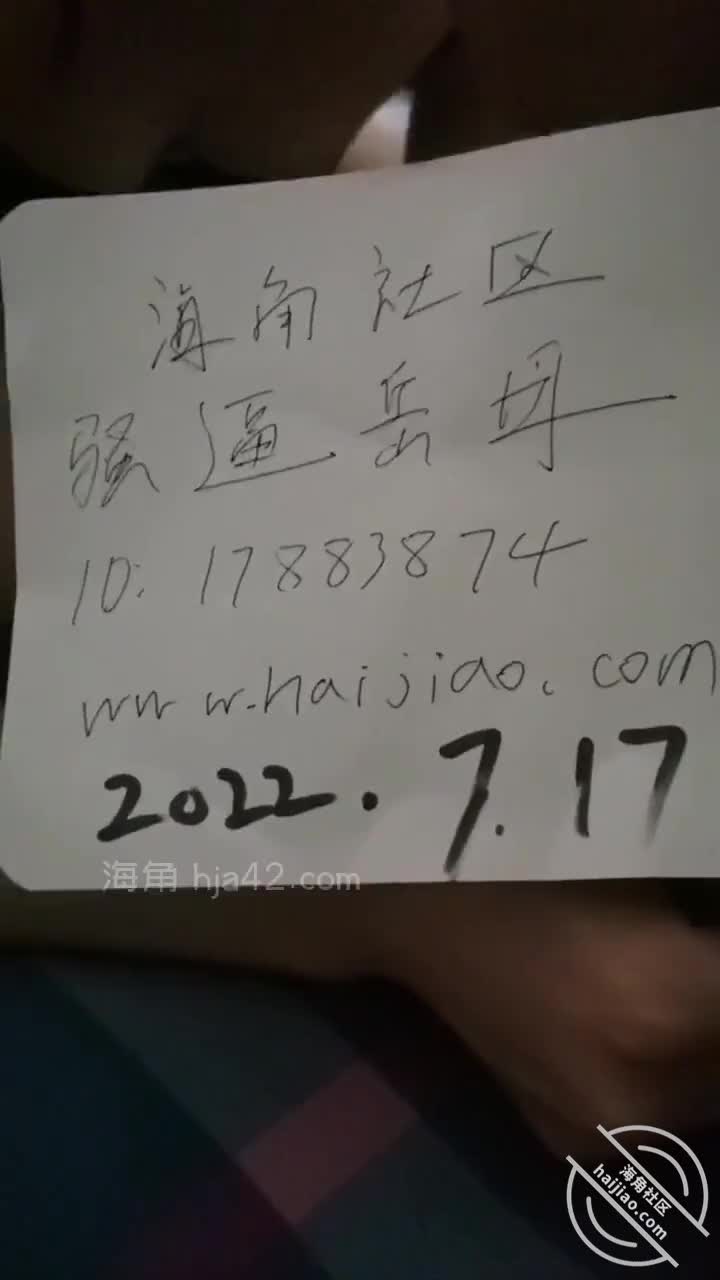 海角社区
骚逼岳母
ID: 17883874
www.haijiao.com
2022.7.17
海角 hja42.com
海角社区
haijiao.com